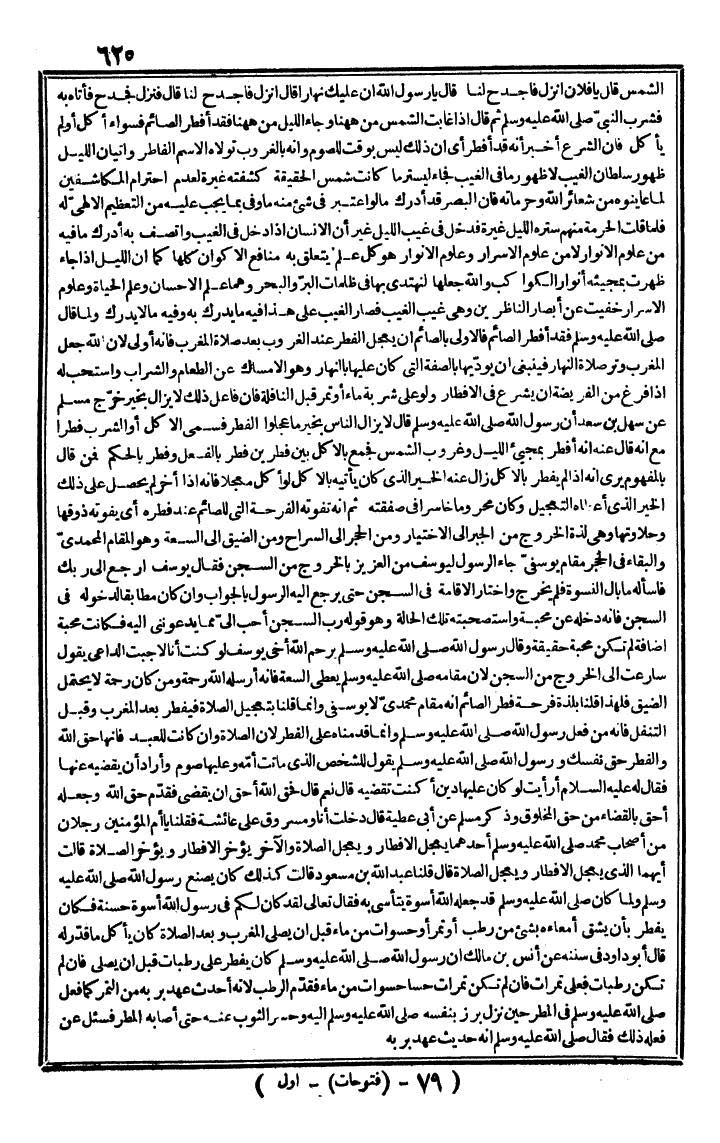 ٦٢٥
الشمس قال يا فلان انزل فاجدح لنا قال يا رسول الله ان عليك نهارا قال انزل فاجدح لنا قال فنزل فجدح فأتاه به
فشرب النبيّ صلى الله عليه وسلم ثم قال اذا غابت الشمس من ههنا وجاء الليل من ههنا فقد أفطر الصائم فسواء أكل أو لم
يأكل فان الشرع أخبر أنه قد أفطر أى ان ذلك ليس بوقت للصوم وانه بالغروب تولاه الاسم الفاطر واتيان الليل
ظهور سلطان الغيب لا ظهور ما فى الغيب فجاء ليستر ما كانت شمس الحقيقة كشفته غيرة لعدم احترام المكاشفين
لما عاينوه من شعائر الله وحرماته فان البصر قد أدرك ما لو اعتبر فى شئ منه ما وفى بما يجب عليه من التعظيم الالهىّ له
فلما قات الحرمة منهم ستره الليل غيرة فدخل فى غيب الليل غير أن الانسان اذا دخل فى الغيب واتصف به أدرك ما فيه
من علوم الانوار لا من علوم الاسرار وعلوم الانوار هو كل علم يتعلق به منافع الاكوان كلها كما ان الليل اذا جاء
ظهرت بمجيئه أنوار الكواكب والله جعلها لنهتدى بها فى ظلمات البرّ والبحر وهما علم الاحسان وعلم الحياة وعلوم
الاسرار خفيت عن أبصار الناظرين وهى غيب الغيب فصار الغيب على هذا فيه ما يدرك به وفيه ما لا يدرك ولما قال
صلى الله عليه وسلم فقد أفطر الصائم فالاولى بالصائم ان يعجل الفطر عند الغروب بعد صلاة المغرب فانه أولى لان الله جعل
المغرب وتر صلاة النهار فينبغى ان يودّيها بالصفة التى كان عليها بالنهار وهو الامساك عن الطعام والشراب واستحب له
اذا فرغ من الفريضة ان يشرع فى الافطار ولو على شربة ماء أو تمر قبل النافلة فان فاعل ذلك لا يزال بخير خرّج مسلم
عن سهل بن سعد أن رسول الله صلى الله عليه وسلم قال لا يزال الناس بخير ما عجلوا الفطر فسمى الاكل أو الشرب فطرا
مع انه قال عنه انه أفطر بمجيئ الليل وغروب الشمس فجمع بالاكل بين فطرين فطر بالفعل وفطر بالحكم فمن قال
بالمفهوم يرى انه اذا لم يفطر بالاكل زال عنه الخير الذى كان يأتيه بالاكل لو أكل معجلا فانه اذا أخر لم يحصل على ذلك
الخير الذى أعطاه التعجيل وكان محروما خاسرا فى صفقته ثم انه تفوته الفرحة التى للصائم عند فطره أى يفوته ذوقها
وحلاوتها وهى لذة الخروج من الجبر الى الاختيار ومن الحجر الى السراح ومن الضيق الى السعة وهو المقام المحمدىّ
والبقاء فى الحجر مقام يوسفىّ جاء الرسول ليوسف من العزيز بالخروج من السجن فقال يوسف ارجع الى ربك
فاسأله ما بال النسوة فلم يخرج واختار الاقامة فى السجن حتى يرجع اليه الرسول بالجواب وان كان مطابقا لدخوله فى
السجن فانه دخله عن محبة واستصحبته تلك الحالة وهو قوله رب السجن أحب الىّ مما يدعوننى اليه فكانت محبة
اضافة لم تكن محبة حقيقة وقال رسول الله صلى الله عليه وسلم يرحم الله أخى يوسف لو كنت أنا لاجبت الداعى يقول
سارعت الى الخروج من السجن لان مقامه صلى الله عليه وسلم يعطى السعة فانه أرسله الله رحمة ومن كان رحمة لا يحتمل
الضيق فلهذا قلنا بلذة فرحة فطر الصائم انه مقام محمدىّ لا يوسفى وانما قلنا بتعجيل الصلاة فيفطر بعد المغرب وقبل
التنفل فانه من فعل رسول الله صلى الله عليه وسلم وانما قدمناه على الفطر لان الصلاة وان كانت للعبد فانها حق الله
والفطر حق نفسك ورسول الله صلى الله عليه وسلم يقول للشخص الذى ماتت أمه وعليها صوم وأراد أن يقضيه عنها
فقال له عليه السلام أرأيت لو كان عليها دين أكنت تقضيه قال نعم قال فحق الله أحق ان يقضى فقدّم حق الله وجعله
أحق بالقضاء من حق المخلوق وذكر مسلم عن أبى عطية قال دخلت أنا ومسروق على عائشة فقلنا يا أم المؤمنين رجلان
من أصحاب محمد صلى الله عليه وسلم أحدهما يعجل الافطار ويعجل الصلاة والآخر يؤخر الافطار ويؤخر الصلاة قالت
أيهما الذى يعجل الافطار ويعجل الصلاة قال قلنا عبد الله بن مسعود قالت كذلك كان يصنع رسول الله صلى الله عليه
وسلم ولما كان صلى الله عليه وسلم قد جعله الله أسوة يتأسى به فقال تعالى لقد كان لكم فى رسول الله أسوة حسنة فكان
يفطر بأن يشق أمعاءه بشئ من رطب أو تمر أو حسوات من ماء قبل ان يصلى المغرب وبعد الصلاة كان يأكل ما قدّر له
قال أبو داود فى سننه عن أنس بن مالك ان رسول الله صلى الله عليه وسلم كان يفطر على رطبات قبل ان يصلى فان لم
تكن رطبات فعلى تمرات فان لم تكن تمرات حسا حسوات من ماء فقدّم الرطب لانه أحدث عهد بربه من التمر كما فعل
صلى الله عليه وسلم فى المطر حين نزل برز بنفسه صلى الله عليه وسلم اليه وحسر الثوب عنه حتى أصابه المطر فسئل عن
فعله ذلك فقال صلى الله عليه وسلم انه حديث عهد بربه
( ٧٩ - (فتوحات) - اول )